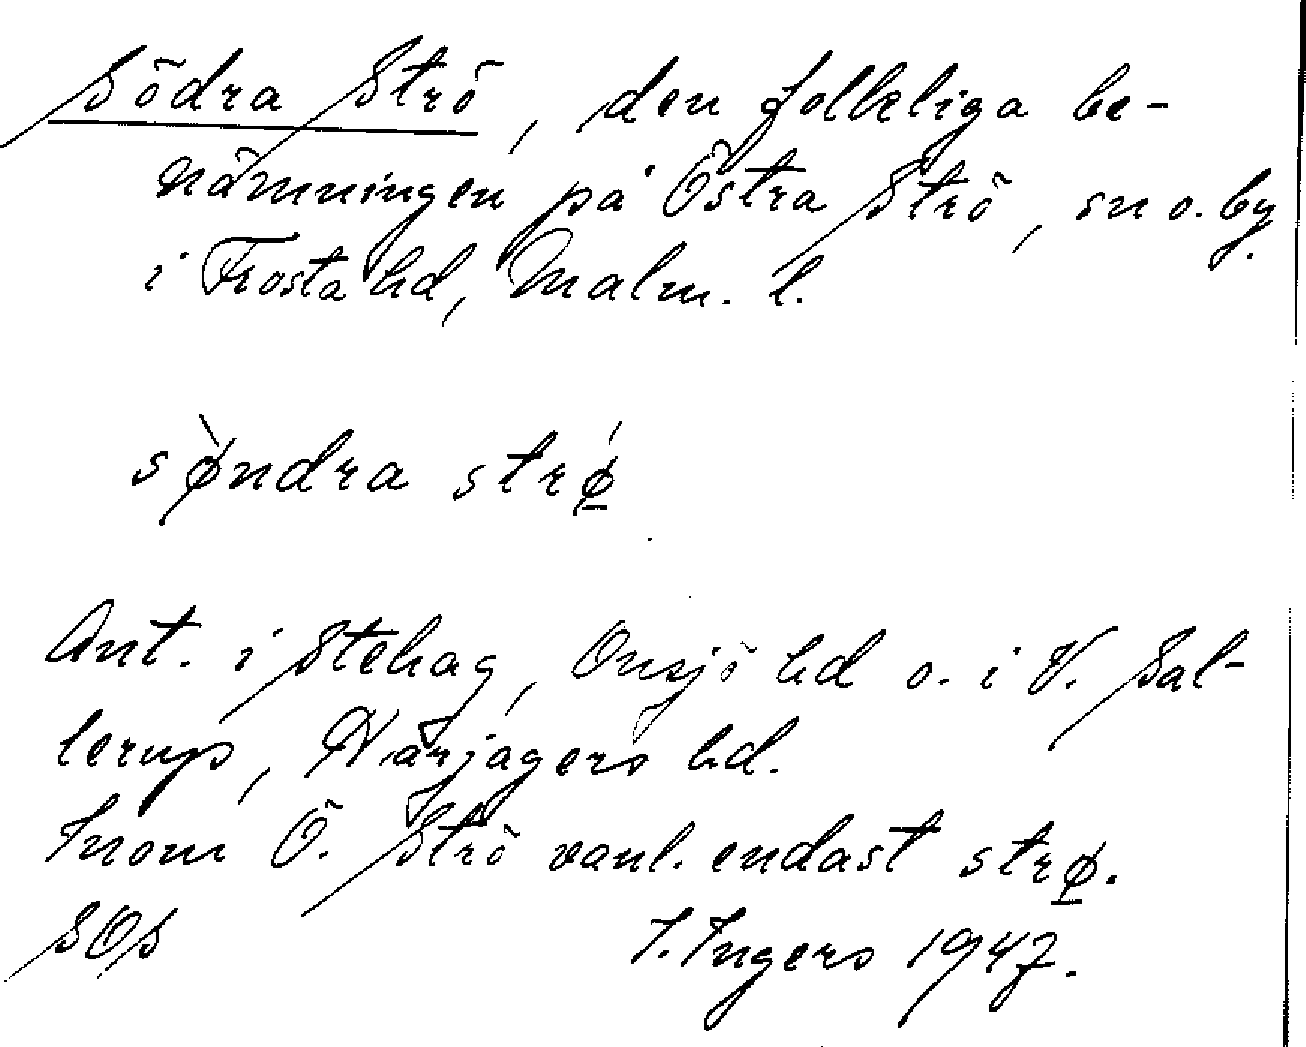 Södra Strö, den folkliga be-
nämningen på Östra Strö, sn o. by
i Frosta hd, Malm. l.
sø̀ndra strǿ̲
Ant. i Stehag, Onsjö hd o. i V. Sal-
lerup, Harjagers hd.
Inom Ö. Strö vanl. endast strø̲.
SOS I. Ingers 1947.